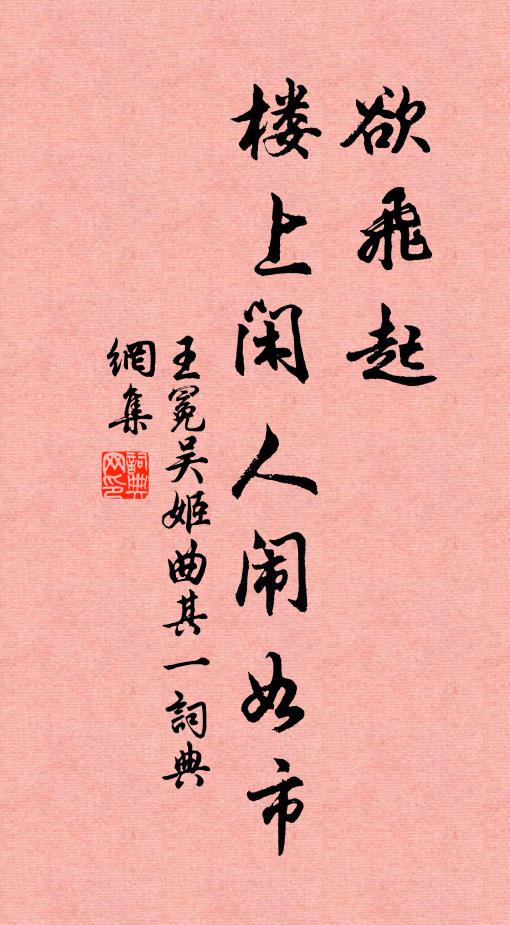 欲飛起
楼上閑人闹如市
王冕吴姬曲其一詞典
網集
詞典网印